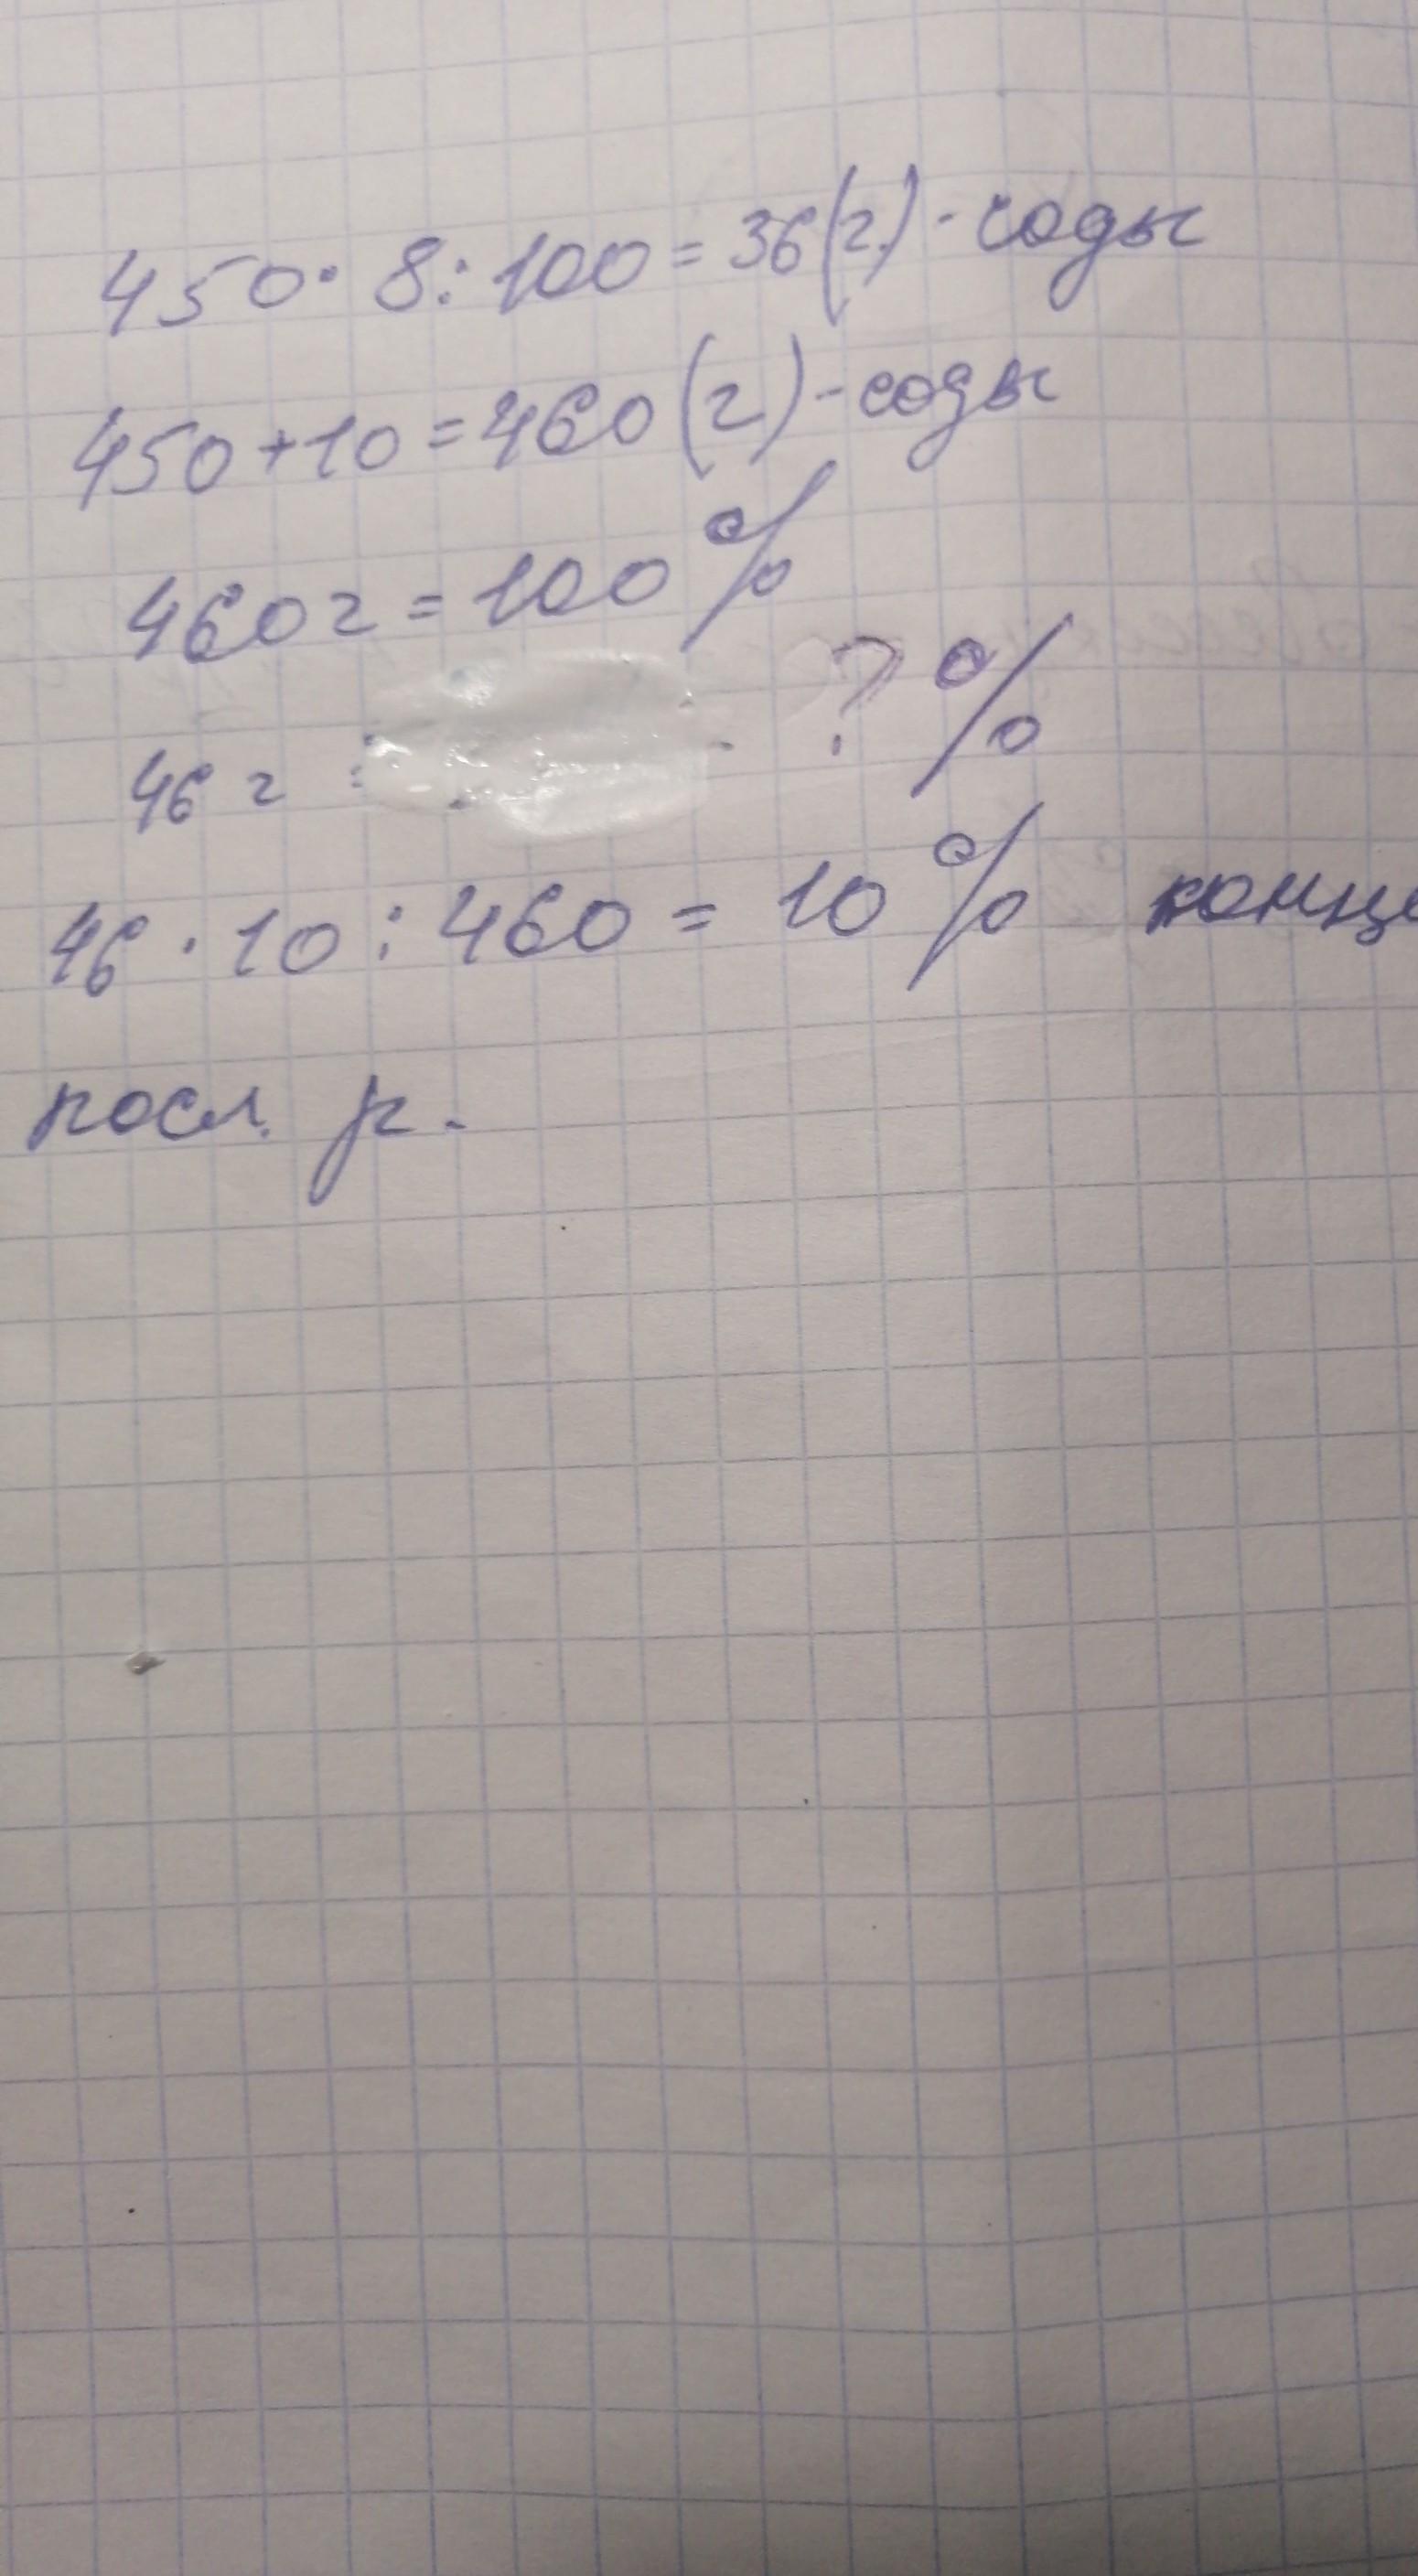 450 · 8 : 100 = 36 (г.) - соды
450 + 10 = 460 (г) - соды
460 г = 100 %
46 г = ? %
46 · 10 : 460 = 10 % конце
посл. р.